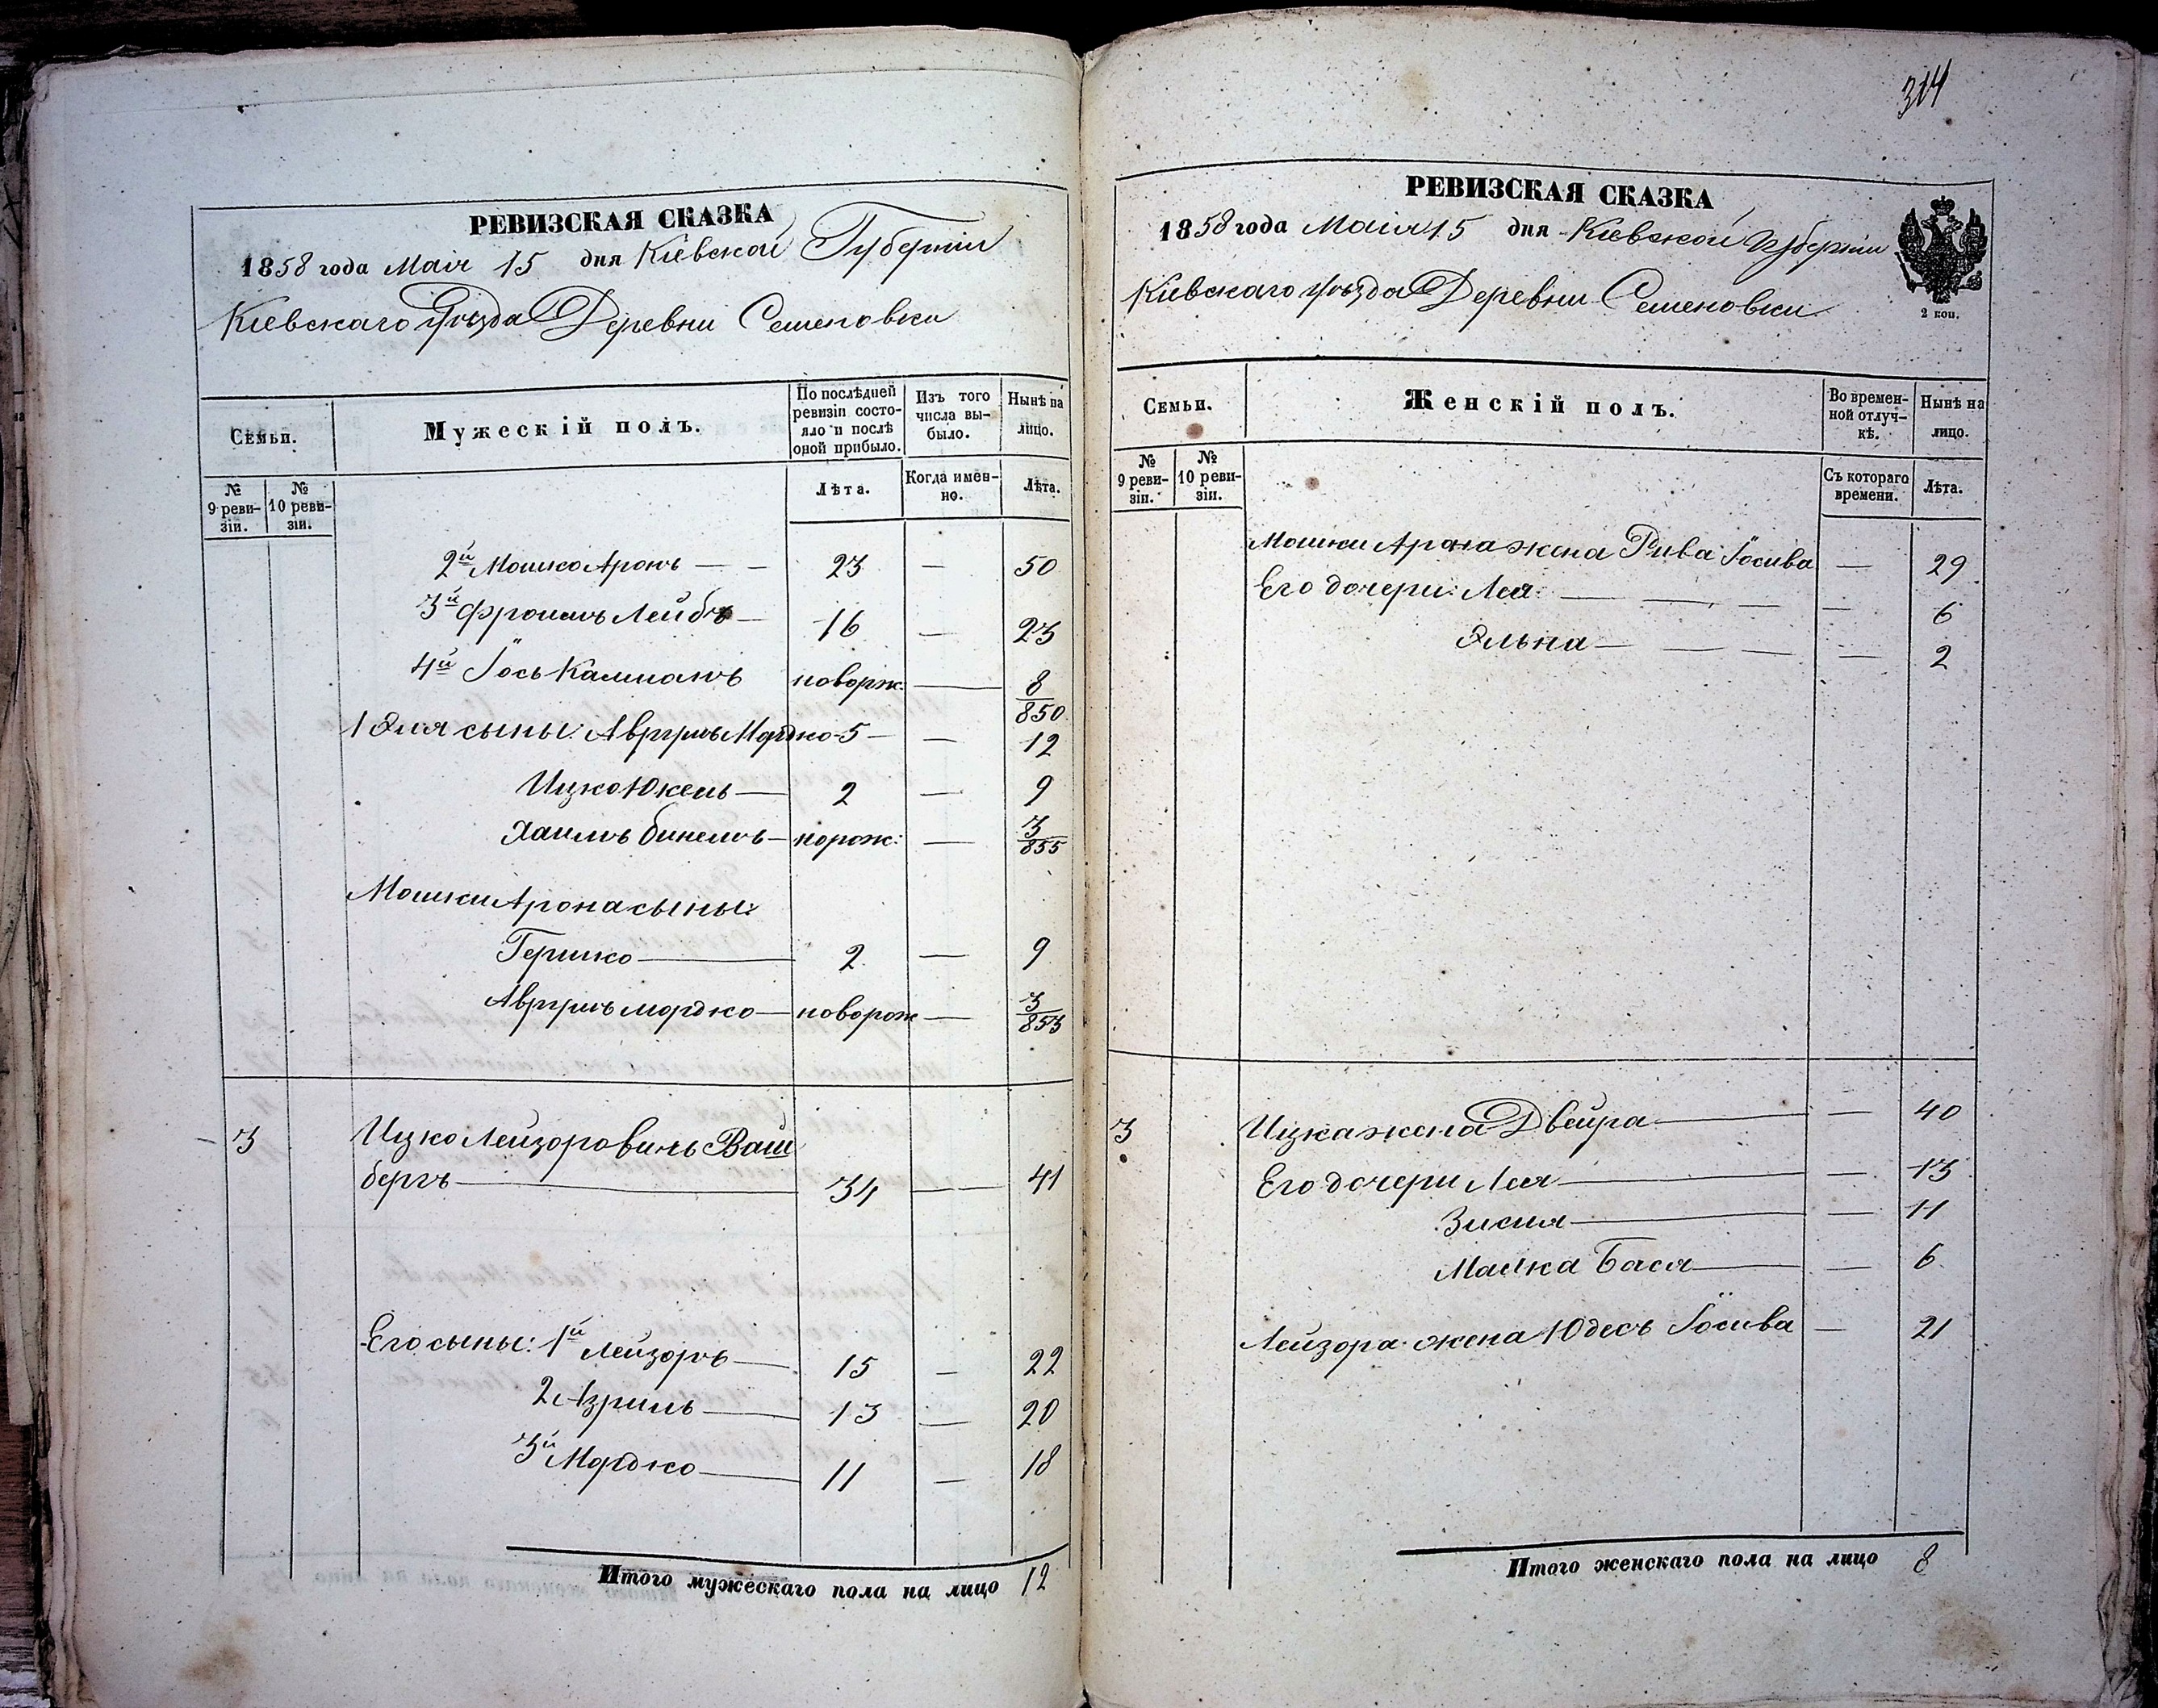 РЕВИЗСКАЯ СКАЗКА
1858 года Маія 15 дня Кіевской Губерніи
Кіевскаго Уѣзда Деревни Семеновки
Семьи.
Мужескій полъ.
По послѣдней ревизіи состояло и послѣ оной прибыло.
Изъ того числа выбыло.
Нынѣ на лицо.
№ 9 ревизіи.
№ 10 ревизіи.
Лѣта.
Когда именно.
Лѣта.
2й Мошко Аронъ — — 23 — 50
3й Фроимъ Лейбъ — 16 — 23
4й Іось Калманъ новорж: — 8/850
1 Эля сыны: Аврумъ Мордко - 5 — — 12
Ицко Юкель — 2 — 9
Хаимъ Бинемъ — норож: — 3/855
Мошки Арона сыны:
Гершко — 2 — 9
Аврумъ Мордко — новорож — 3/853
3 Ицко Лейзоровичъ Ваш
бергъ — 34 — — 41
Его сыны: 1й Лейзоръ — 15 — 22
2 Азриль — 13 — 20
3й Мордко — 11 — 18
Итого мужескаго пола на лицо 12
314
РЕВИЗСКАЯ СКАЗКА
1858 года Маія 15 дня Кіевской Губерніи
Кіевскаго уѣзда Деревни Семеновки
2 коп.
Семьи.
Женскій полъ.
Во временной отлучкѣ.
Нынѣ на лицо.
№ 9 ревизіи.
№ 10 ревизіи.
Съ котораго времени.
Лѣта.
Мошки Арона жена Рива Іосива — 29
Его дочери: Лея — — — — — 6
Элька — — — — — 2
3 Ицка жена Двейра — — 40
Его дочери Лея — — 13
Зисля — — 11
Малка Бася — — 6
Лейзора жена Юдесъ Іосива — 21
Итого женскаго пола на лицо 8